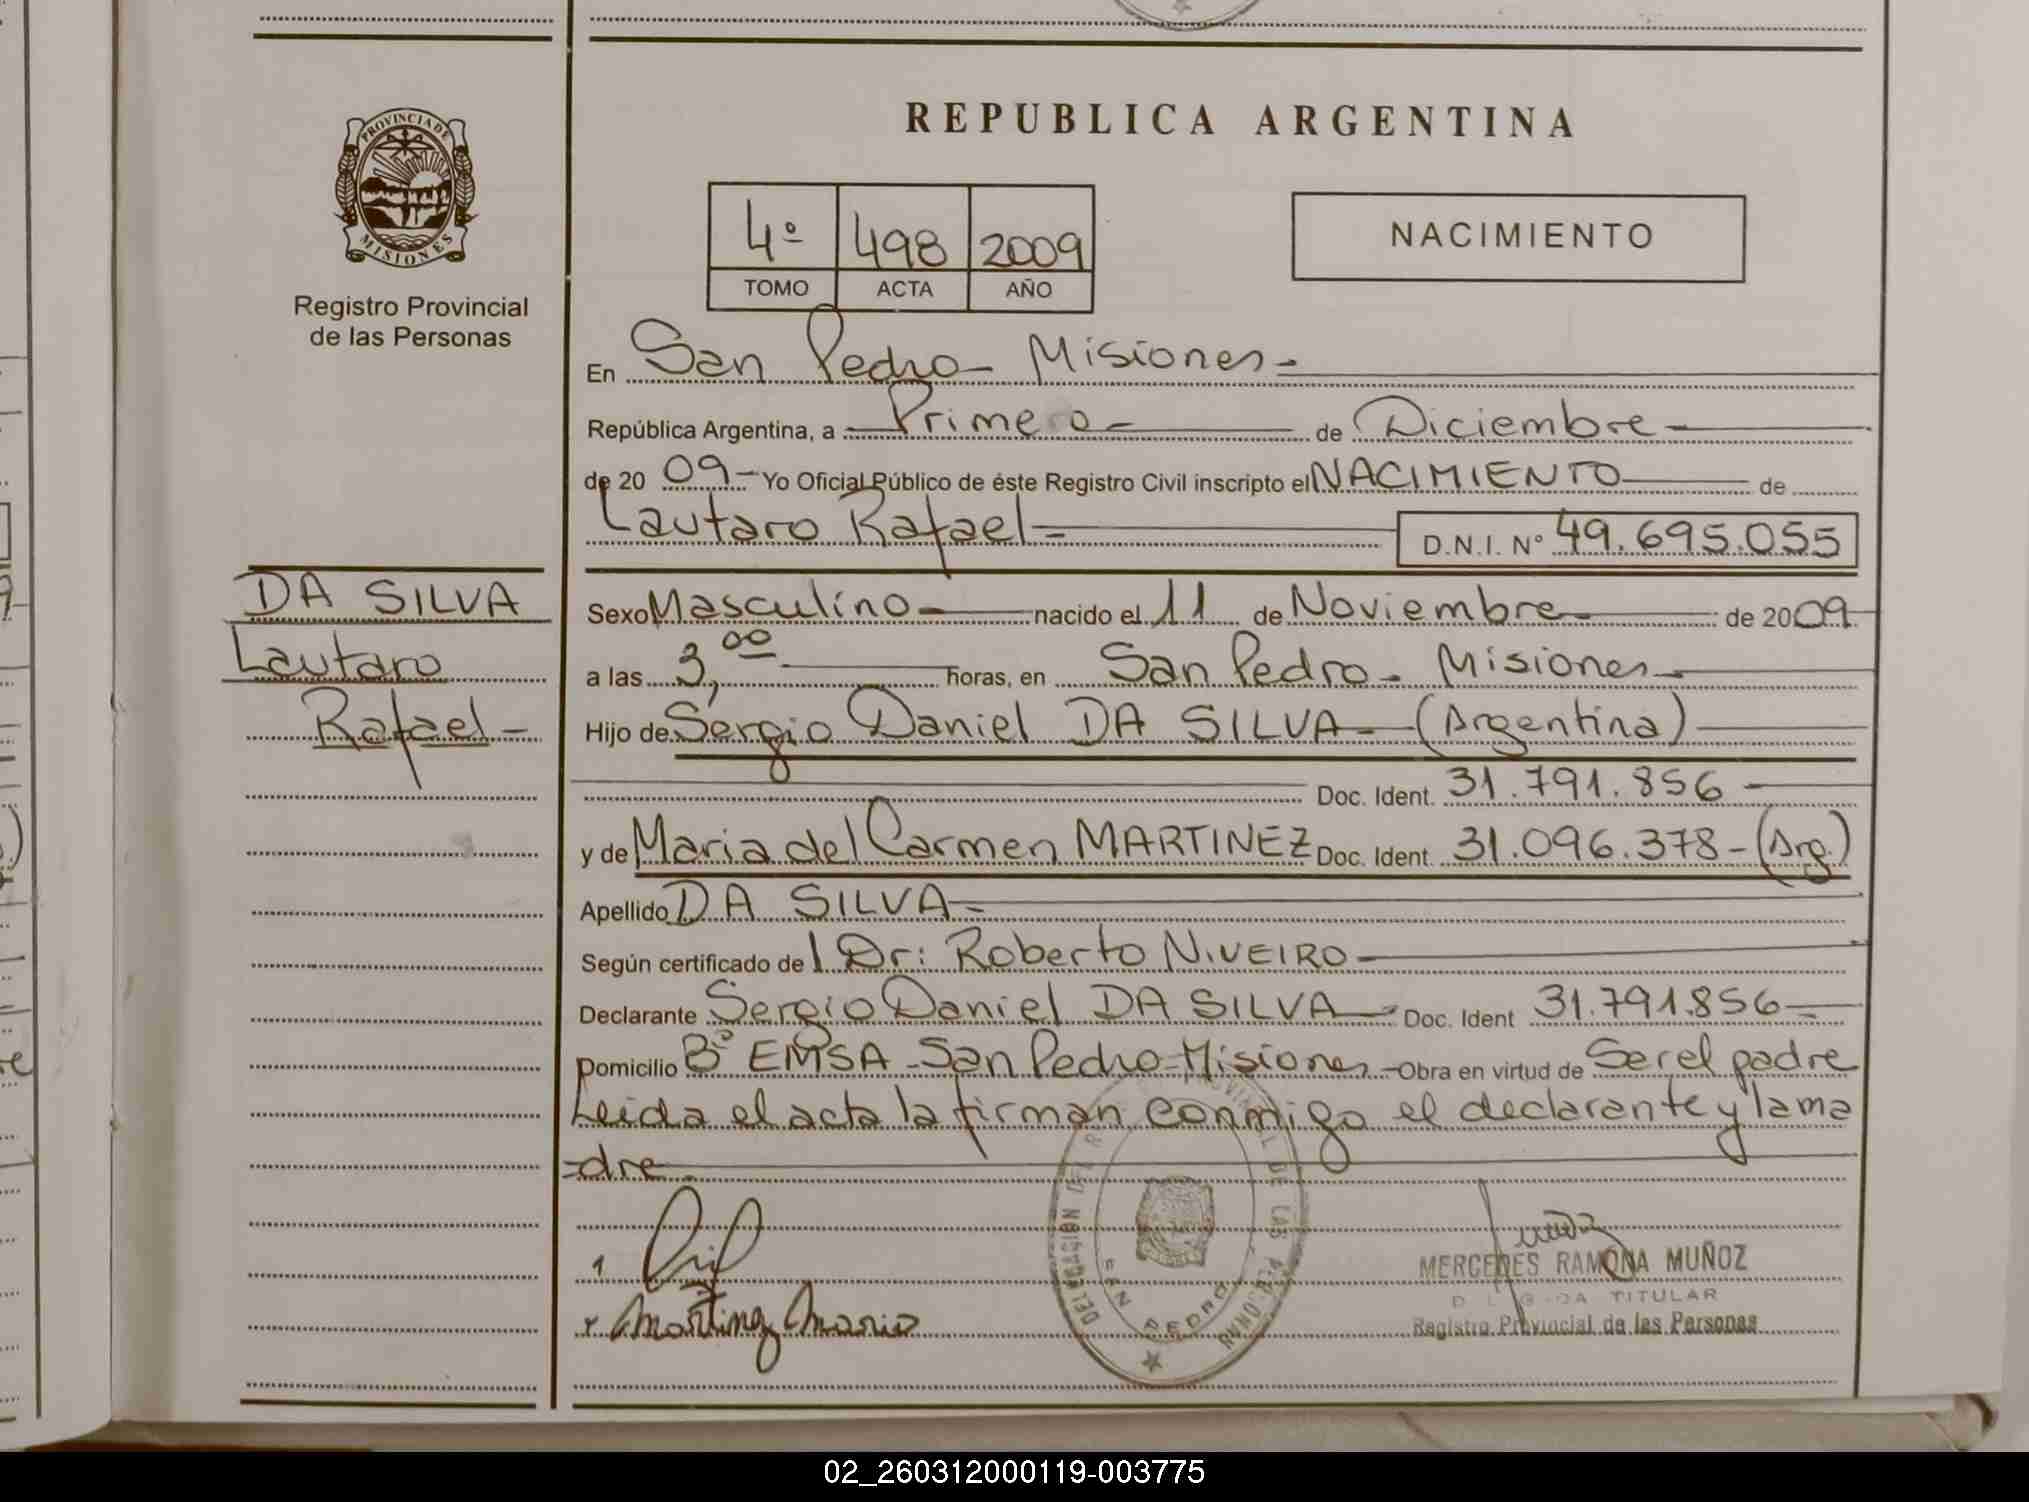 REPUBLICA ARGENTINA
PROVINCIA DE
MISIONES
Registro Provincial
de las Personas
4º 498 2009
TOMO ACTA AÑO
NACIMIENTO
En San Pedro - Misiones -
República Argentina, a Primero - de Diciembre -
de 20 09 - Yo Oficial Público de éste Registro Civil inscripto el NACIMIENTO de
Lautaro Rafael = D.N.I. Nº 49.695.055
DA SILVA
Lautaro
Rafael -
Sexo Masculino - nacido el 11 de Noviembre - de 2009
a las 3,00 horas, en San Pedro - Misiones -
Hijo de Sergio Daniel DA SILVA - (Argentina)
Doc. Ident. 31.791.856 -
y de Maria del Carmen MARTINEZ Doc. Ident. 31.096.378 - (Arg.)
Apellido DA SILVA -
Según certificado del Dr: Roberto NIVEIRO -
Declarante Sergio Daniel DA SILVA - Doc. Ident 31.791.856 -
Domicilio Bº EMSA - San Pedro - Misiones - Obra en virtud de Ser el padre
Leida el acta la firman conmigo el declarante y la ma
=dre.
SAN PEDRO
MERCEDES RAMONA MUÑOZ
TITULAR
Registro Provincial de las Personas
Martinez Maria
02_260312000119-003775